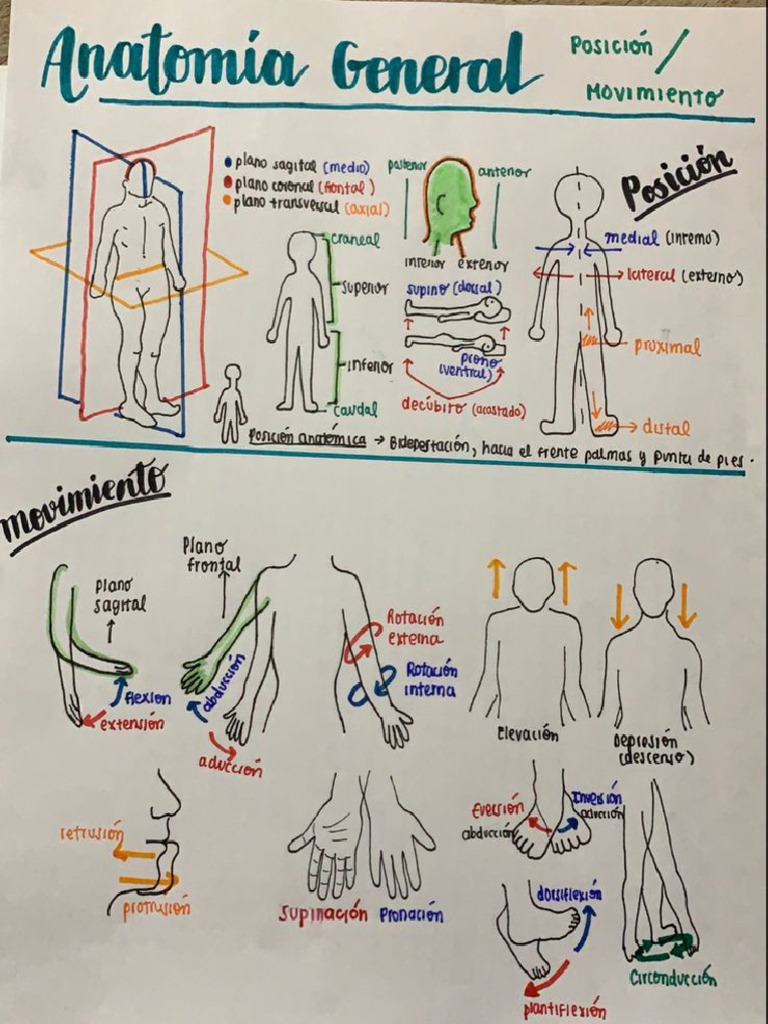 Anatomía General
Posición /
Movimiento
Posición
• plano sagital (medio)
• plano coronal (frontal)
• plano transversal (axial)
posterior
anterior
inferior exterior
craneal
superior
inferior
caudal
supino (dorsal)
prono
(ventral)
decúbito (acostado)
medial (interno)
lateral (externo)
proximal
distal
Posición anatómica → Bidepestación, hacia el frente palmas y punta de pies.
movimiento
Plano
sagital
flexion
extensión
Plano
frontal
abducción
aducción
Rotación
externa
Rotación
interna
Elevación
Depresión
(descenso)
retrusión
protrusión
Supinación Pronación
Eversión
abducción
Inversión
aducción
dorsiflexión
plantiflexión
Circonducción